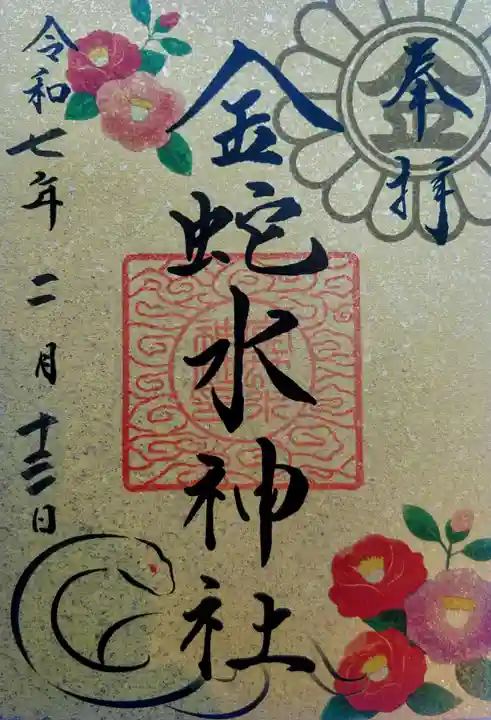 奉拝
金
金蛇水神社
令和七年二月十二日